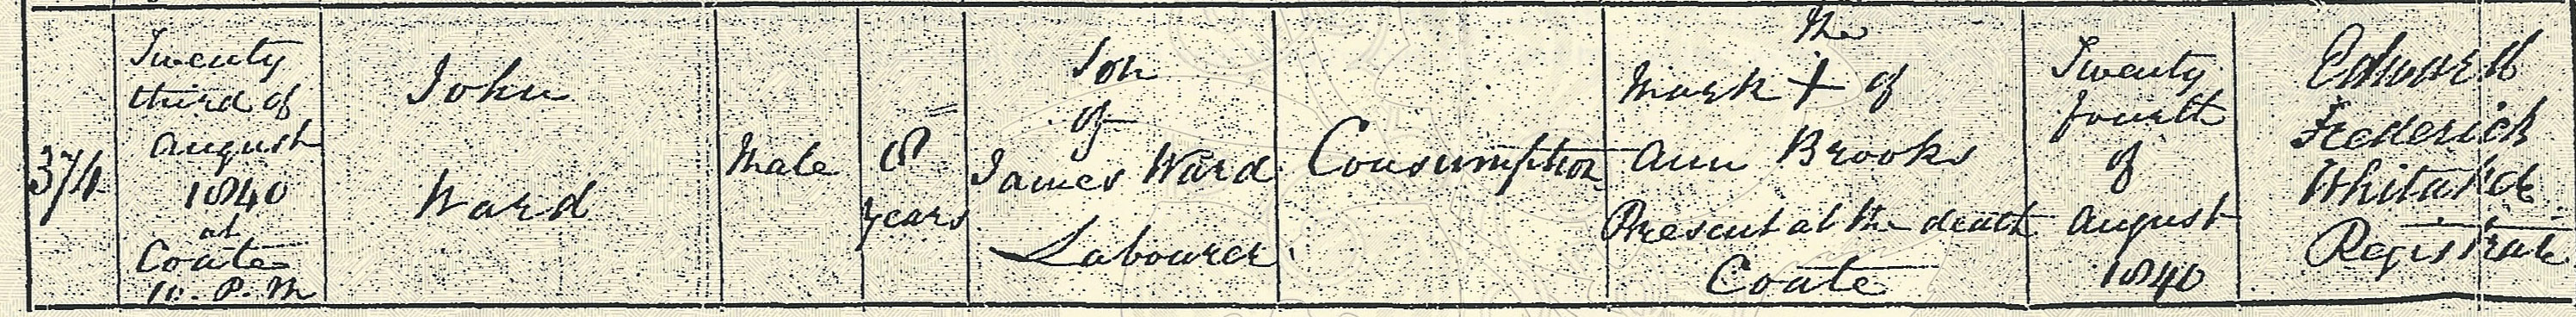 374
Twenty
third of
August
1840
at
Coate
10. P. M
John
Ward
Male
8
years
Son
of
James Ward
Labourer
Consumption
The
Mark + of
Ann Brooks
Present at the death
Coate
Twenty
fourth
of
August
1840
Edward
Frederick
Registrar